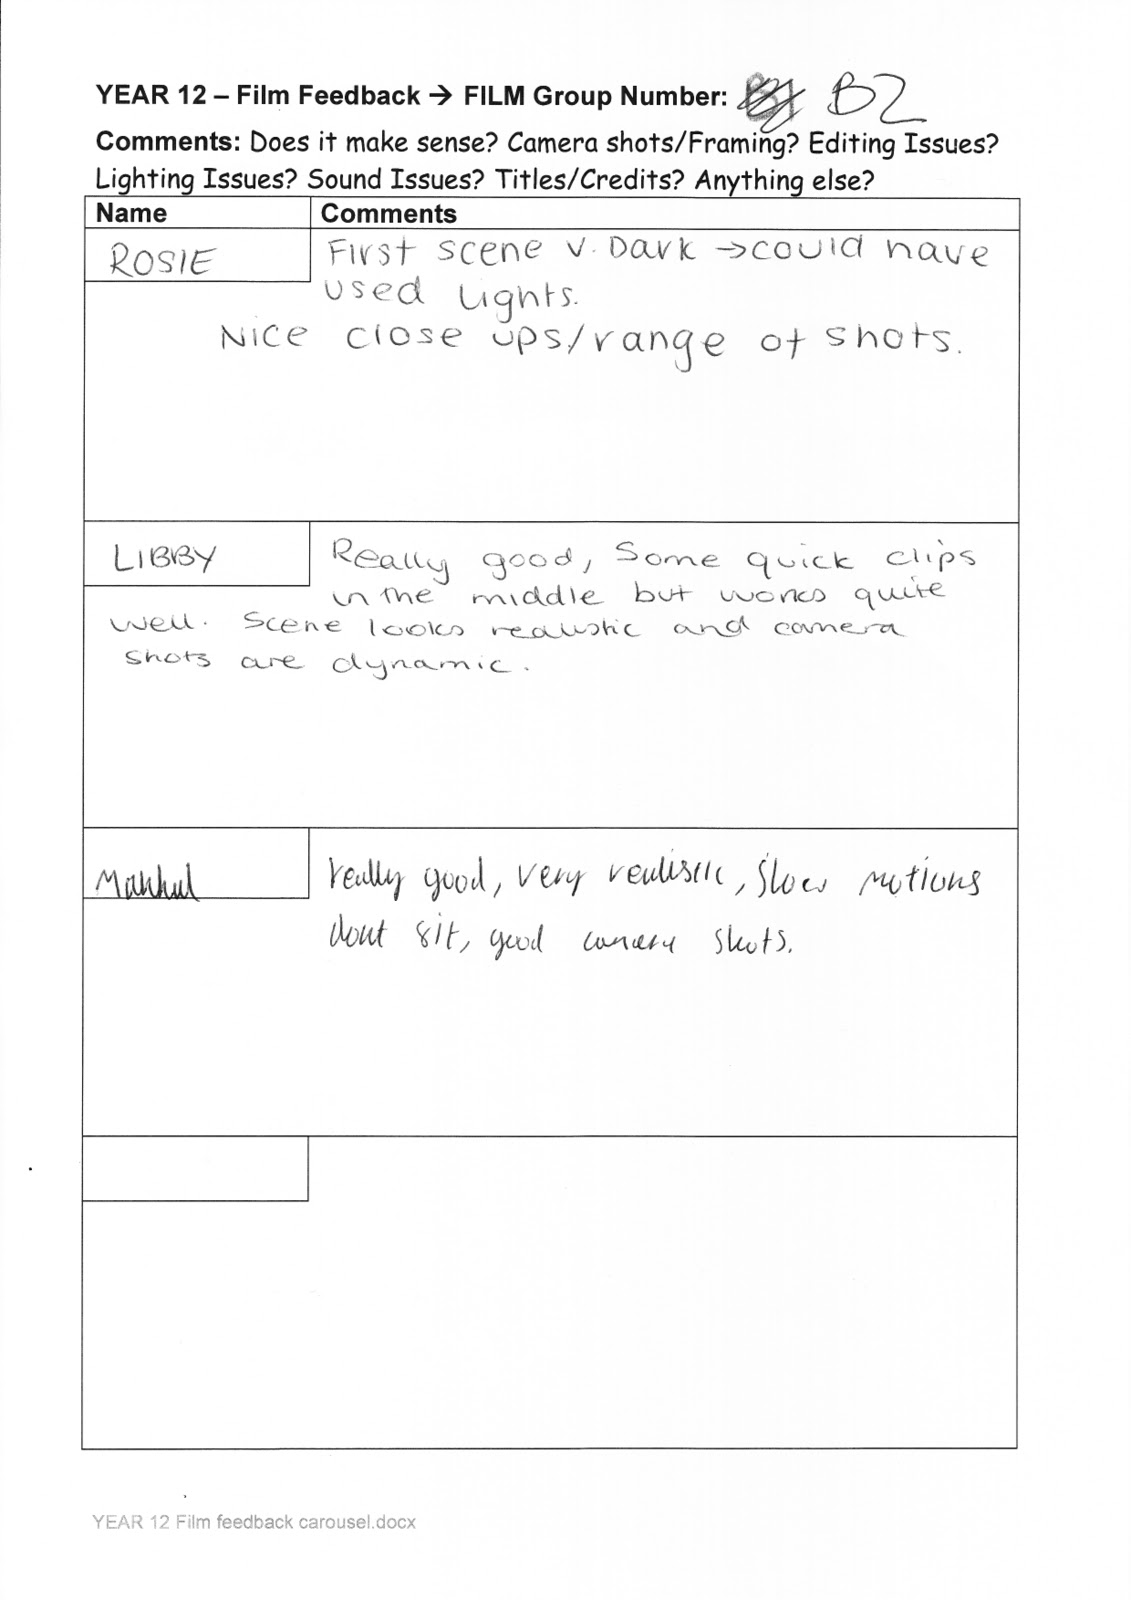 YEAR 12 – Film Feedback → FILM Group Number: B2
Comments: Does it make sense? Camera shots/Framing? Editing Issues?
Lighting Issues? Sound Issues? Titles/Credits? Anything else?
Name Comments
ROSIE First scene v. Dark → could have
used lights.
Nice close ups/range of shots.
LIBBY Really good, Some quick clips
in the middle but works quite
well. Scene looks realistic and camera
shots are dynamic.
really good, very realistic, Slow motions
dont sit, good camera shots.
YEAR 12 Film feedback carousel.docx